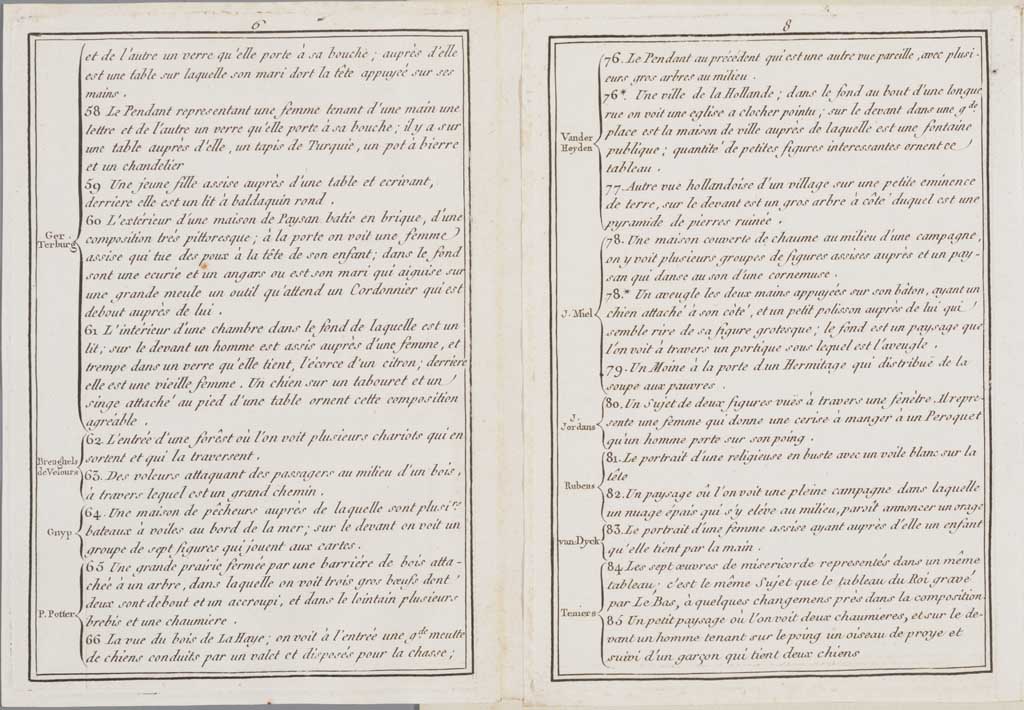 6
et de l'autre un verre qu'elle porte à sa bouche ; auprès d'elle
est une table sur laquelle son mari dort la tête appuyeé sur ses
mains .
58 Le Pendant representant une femme tenant d'une main une
lettre et de l'autre un verre qu'elle porte à sa bouche ; il y a sur
une table auprès d'elle, un tapis de Turquie, un pot à bierre
et un chandelier
59 Une jeune fille assise auprès d'une table et ecrivant,
derriere elle est un lit à baldaquin rond .
Ger. Terburg
60 L'extérieur d'une maison de Paysan batie en brique, d'une
composition trés pittoresque ; à la porte on voit une femme
assise qui tue des poux à la tête de son enfant ; dans le fond
sont une ecurie et un angars ou est son mari qui aiguise sur
une grande meule un outil qu'attend un Cordonnier qui est
debout auprès de lui .
61 L'intérieur d'une chambre dans le fond de laquelle est un
lit ; sur le devant un homme est assis auprès d'une femme, et
trempe dans un verre qu'elle tient, l'écorce d'un citron ; derriere
elle est une vieille femme . Un chien sur un tabouret et un
singe attaché au pied d'une table ornent cette composition
agréable .
Breughels de Velours
62. L'entrée d'une forêst où l'on voit plusieurs chariots qui en
sortent et qui la traversent .
63. Des voleurs attaquant des passagers au milieu d'un bois,
à travers lequel est un grand chemin .
Guyp
64. Une maison de pêcheurs auprès de laquelle sont plusi.rs
bateaux à voiles au bord de la mer ; sur le devant on voit un
groupe de sept figures qui jouent aux cartes .
P. Potter
65 Une grande prairie fermée par une barriére de bois atta-
cheé à un arbre, dans laquelle on voit trois gros bœufs dent
deux sont debout et un accroupi, et dans le lointain plusieurs
brebis et une chaumiere .
66 La vue du bois de La Haye ; on voit à l'entrée une g.de meutte
de chiens conduits par un valet et disposés pour la chasse ;
8
Vander Heyden
76. Le Pendant au précédent qui est une autre vue pareille, avec plusi-
eurs gros arbres au milieu .
76*. Une ville de la Hollande ; dans le fond au bout d'une longue
rue on voit une eglise a clocher pointu ; sur le devant dans une g.de
place est la maison de ville auprès de laquelle est une fontaine
publique ; quantité de petites figures interessantes ornent ce
tableau .
77. Autre vue hollandoise d'un village sur une petite eminence
de terre, sur le devant est un gros arbre à côté duquel est une
pyramide de pierres ruinée .
J. Miel
78. Une maison couverte de chaume au milieu d'une campagne,
on y voit plusieurs groupes de figures assises auprès et un pay-
san qui danse au son d'une cornemuse .
78.* Un aveugle les deux mains appuyées sur son bâton, ayant un
chien attaché à son côté, et un petit polisson auprès de lui qui
semble rire de sa figure grotesque ; le fond est un paysage que
l'on voit à travers un portique sous lequel est l'aveugle .
79. Un Moine à la porte d'un Hermitage qui distribuë de la
soupe aux pauvres .
J. Jordans
80. Un Sujet de deux figures vuës à travers une fenêtre. Il repre-
sente une femme qui donne une cerise à manger à un Peroquet
qu'un homme porte sur son poing .
Rubens
81. Le portrait d'une religieuse en buste avec un voile blanc sur la
tête
82. Un paysage où l'on voit une pleine campagne dans laquelle
un nuage épais qui s'y eléve au milieu, paroît annoncer un orage
van Dyck
83. Le portrait d'une femme assise ayant auprès d'elle un enfant
qu'elle tient par la main .
Teniers
84 Les sept œuvres de misericorde representés dans un même
tableau ; c'est le même Sujet que le tableau du Roi gravé
par Le Bas, à quelques changemens près dans la composition.
85 Un petit paysage où l'on voit deux chaumieres, et sur le de-
vant un homme tenant sur le poing un oiseau de proye et
suivi d'un garçon qui tient deux chiens